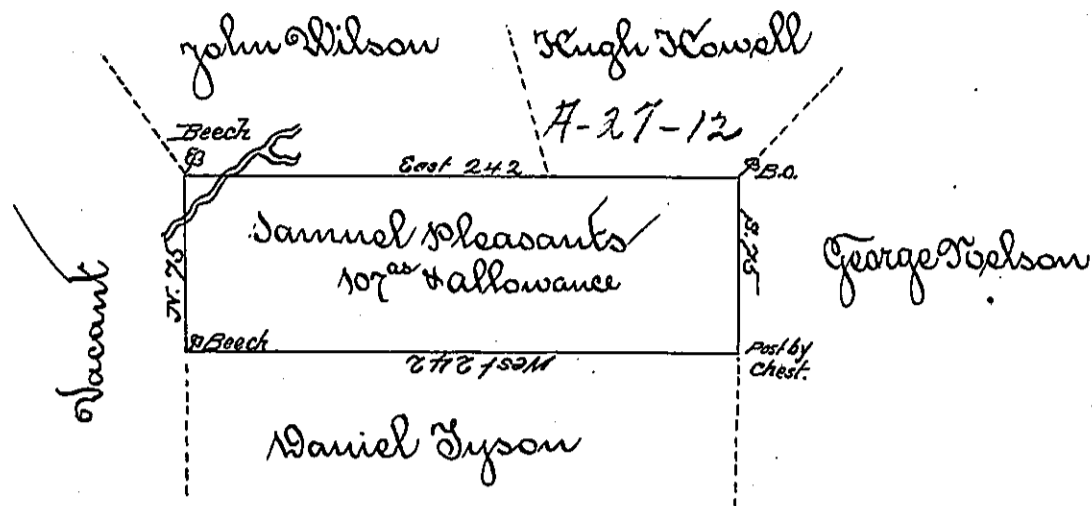 John Wilson
Hugh Howell
A-27-12
Beech
East 242
B.O.
Samuel Pleasants
107 as & allowance
N. 75
S. 75
George Nelson
Vacant
Beech
West 242
Post by
Chest.
Daniel Tyson